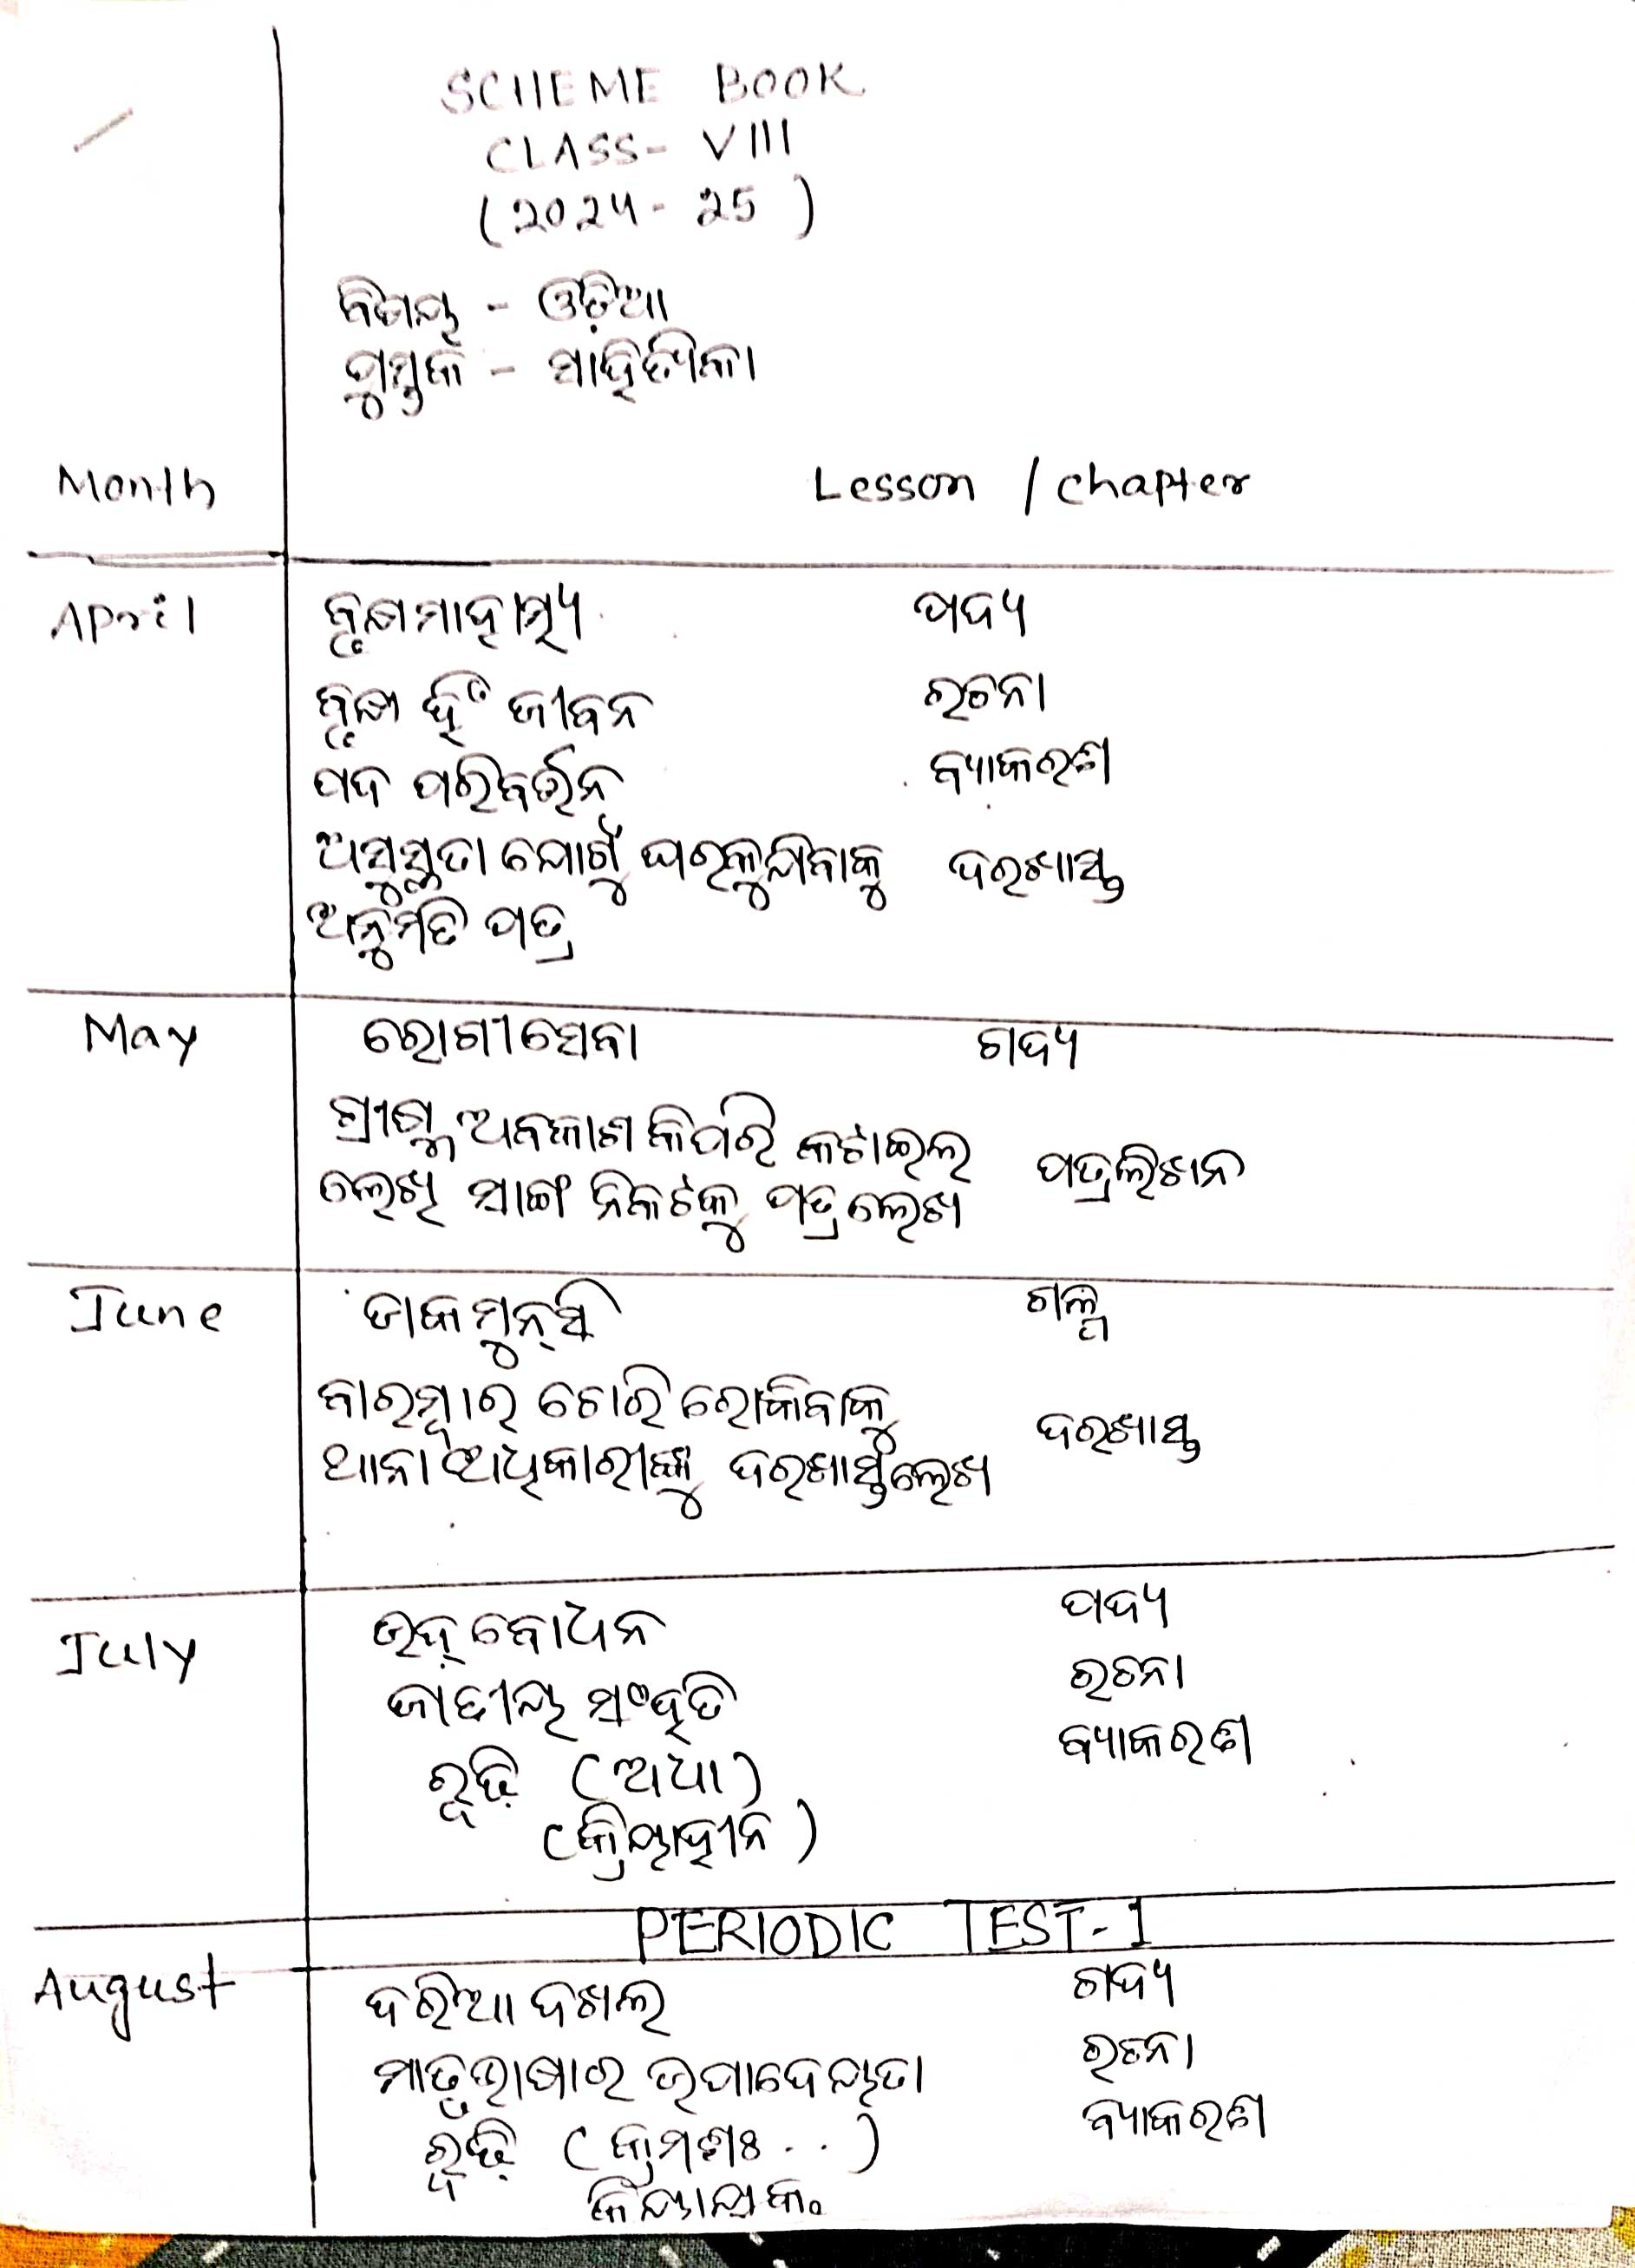 SCHEME BOOK
CLASS- VIII
(2024-25)
ବିଷୟ - ଓଡ଼ିଆ
ପୁସ୍ତକ - ସାହିତ୍ୟିକା
Month Lesson / chapter
April ବୃକ୍ଷ ମାହାତ୍ମ୍ୟ ପଦ୍ୟ
ବୃକ୍ଷ ହିଁ ଜୀବନ ରଚନା
ପଦ ପରିବର୍ତ୍ତନ ବ୍ୟାକରଣ
ଅସୁସ୍ଥତା ଯୋଗୁଁ ଘରକୁ ଯିବାକୁ ଦରଖାସ୍ତ
ଅନୁମତି ପତ୍ର
May ରୋଗୀ ସେବା ଗଦ୍ୟ
ଗ୍ରୀଷ୍ମ ଅବକାଶ କିପରି କଟାଇଲ
ଲେଖି ସାଙ୍ଗ ନିକଟକୁ ପତ୍ର ଲେଖ ପତ୍ରଲିଖନ
June ଡାକମୁନ୍‌ସି ଗଳ୍ପ
ବାରମ୍ବାର ଚୋରି ରୋକିବାକୁ
ଥାନା ଅଧିକାରୀଙ୍କୁ ଦରଖାସ୍ତ ଲେଖ ଦରଖାସ୍ତ
July ଉଦ୍‌ବୋଧନ ପଦ୍ୟ
ଜାତୀୟ ସଂହତି ରଚନା
ରୂଢ଼ି (ଅଧା) ବ୍ୟାକରଣ
(କ୍ରିୟାହୀନ)
PERIODIC TEST-1
August ଦରିଆ ଦଖଲ ଗଦ୍ୟ
ମାତୃଭାଷାର ଉପାଦେୟତା ରଚନା
ରୂଢ଼ି (କ୍ରମଶଃ ..) ବ୍ୟାକରଣ